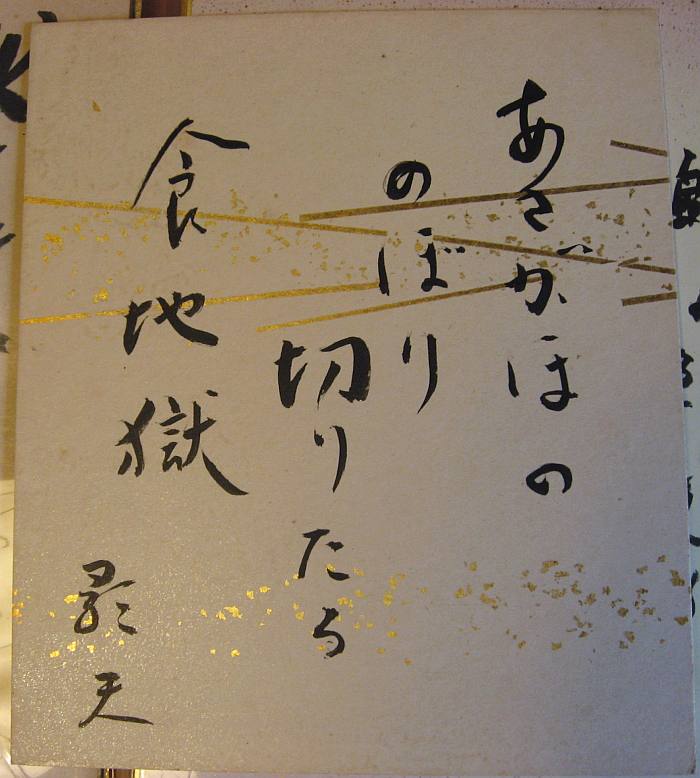 あさがほの
のぼり
切りたる
食地獄
天